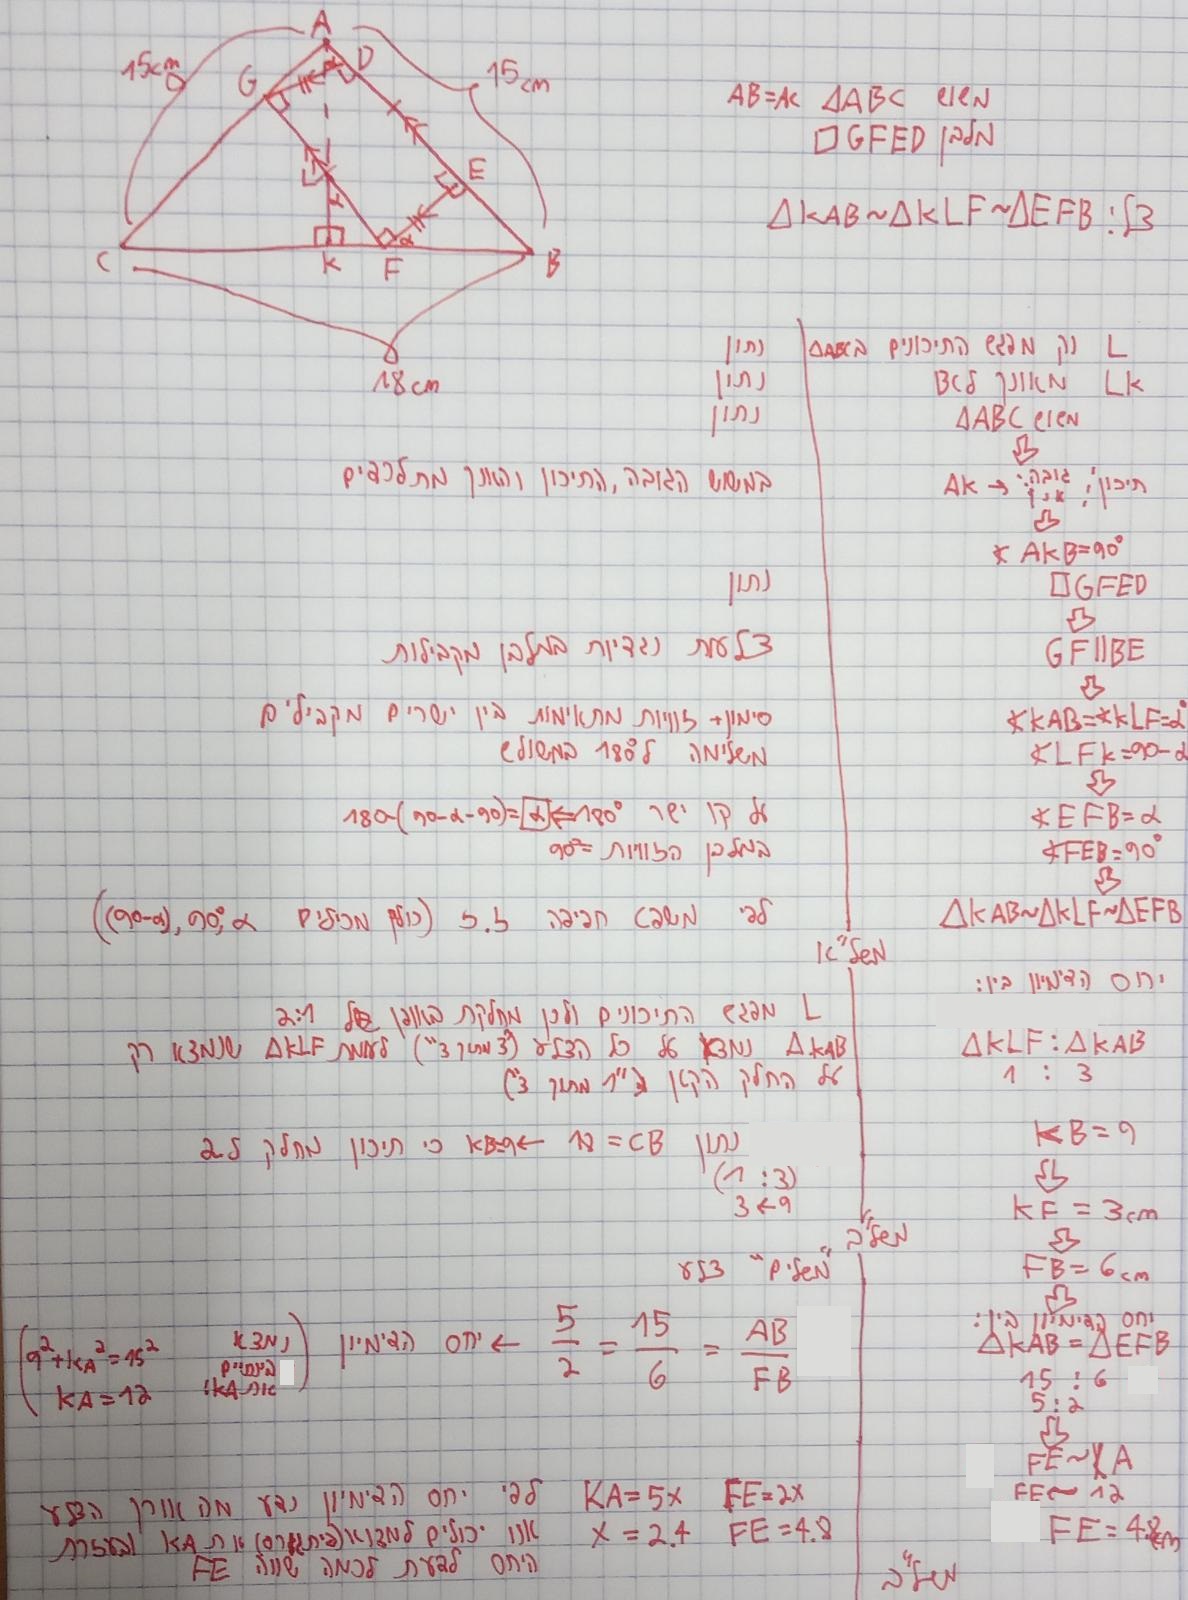 A
D
G
15cm
15cm
E
C
K
F
B
α
α
α
18cm
AB=AC ΔABC משוש
מלבן □GFED
צ"ל: ΔKAB~ΔKLF~ΔEFB
L נק מפגש התיכונים בΔABC נתון
LK מאונך לBC נתון
ΔABC משוש נתון
⇩
AK → גובה, תיכון, אנך במשוש הגובה, התיכון והאנך מתלכדים
⇩
∢AKB=90°
□GFED נתון
⇩
GF||BE צלעות נגדיות במלבן מקבילות
⇩
∢KAB=∢KLF=α° סימון + זוויות מתאימות בין ישרים מקבילים
∢LFK=90-α משלימה ל180° במשולש
⇩
∢EFB=α על קו ישר 180°⇐ α=(90-α-90)-180
∢FEB=90° במלבן הזוויות =90°
⇩
ΔKAB~ΔKLF~ΔEFB לפי משפט חפיפה ז.ז (כולן מכילים α ,90°,(90-α))
משל"א
יחס הדמיון בין:
ΔKLF:ΔKAB
1 : 3
L מפגש התיכונים ולכן מחלקת באופן של 2:1
ΔKAB נמצא על כל הצלע ("3 מתוך 3") לעומת ΔKLF שנמצא רק
על החלק הקטן ("1 מתוך 3")
KB=9 נתון CB = 18 ← KB=9 כי תיכון מחלק ל2
⇩
(1 :3)
KF = 3cm 3←9
משל"ב
⇩
FB=6cm "משלים" צלע
⇩
יחס הדימיון בין:
ΔKAB=ΔEFB
15 : 6
5:2
AB/FB = 15/6 = 5/2 ← יחס הדימיון
(נמצא בינתיים את KA:
9²+KA²=15²
KA=12)
⇩
FE~KA
FE~12
FE=4.8cm
KA=5x FE=2x לפי יחס הדימיון נדע מה אורך הצלע
x=2.4 FE=4.8 אנו יכולים למצוא (פיתגורס) את KA ובעזרת
היחס לדעת לכמה שווה FE
משל"ב